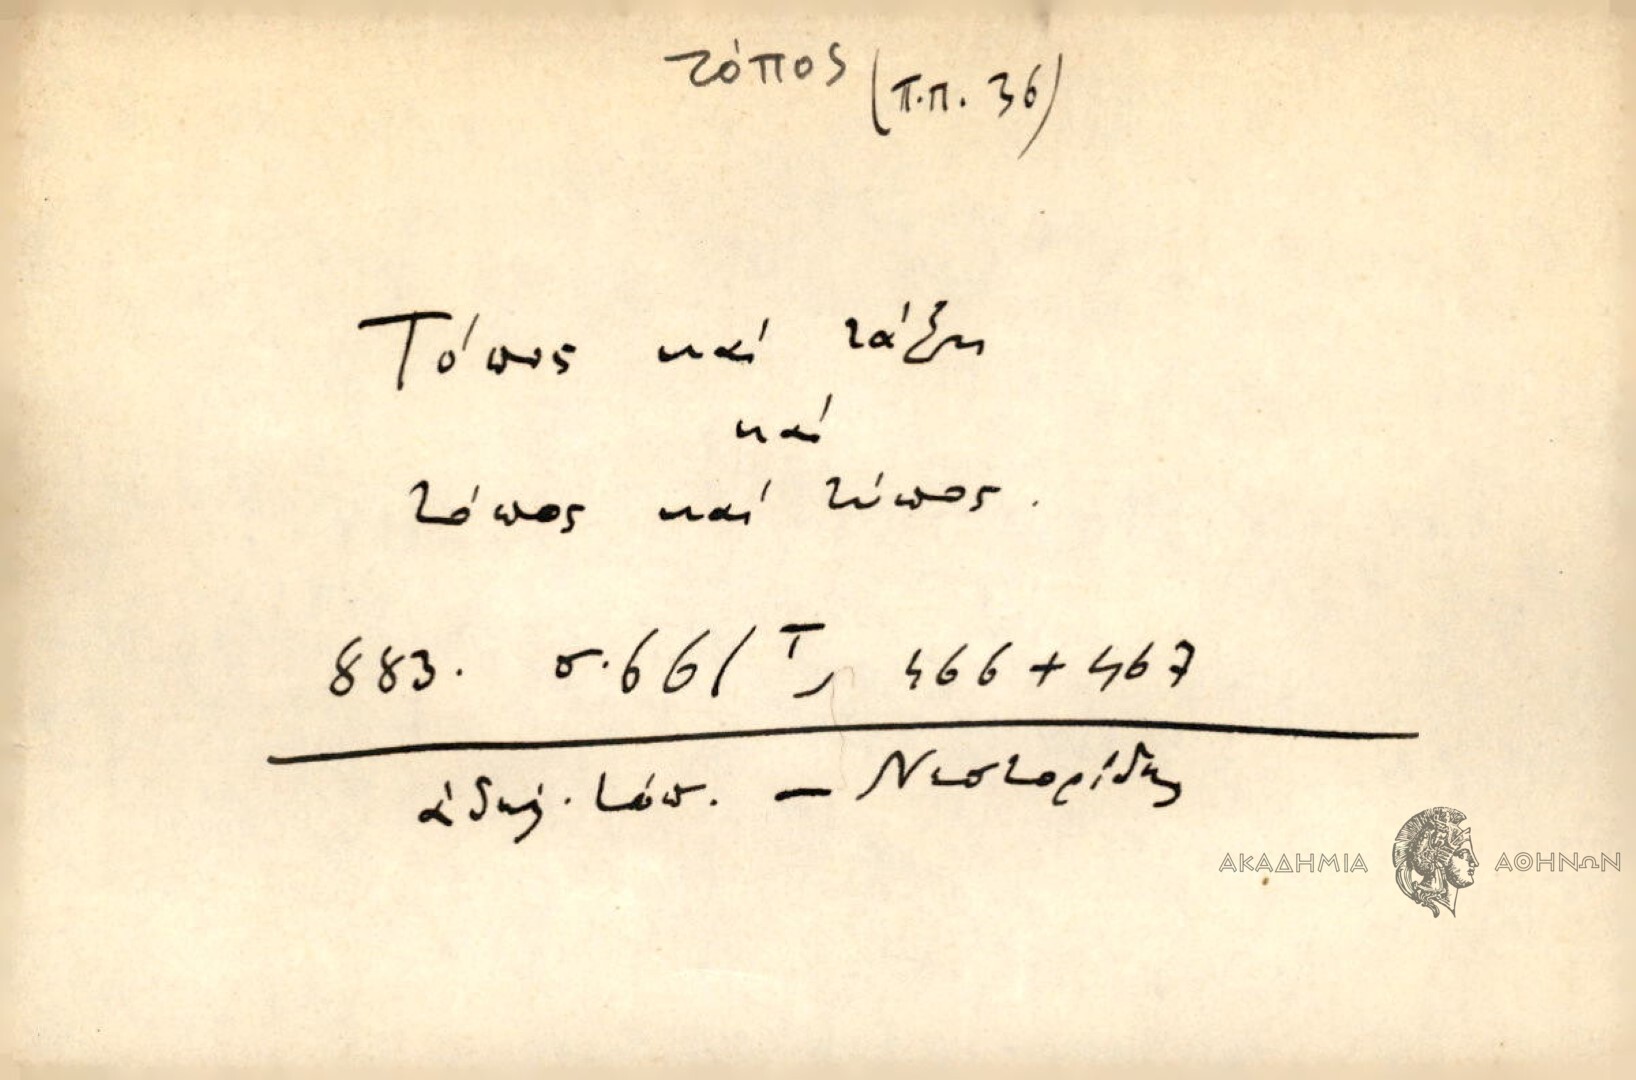 τόπος (π.π. 36)
Τόπος καί τάξη
καί
τόπος καί τύπος.
883. σ. 661 Τ, 466 + 467
ἀδήλ. τόπ. — Νεστορίδης
ΑΚΑΔΗΜΙΑ ΑΘΗΝΩΝ